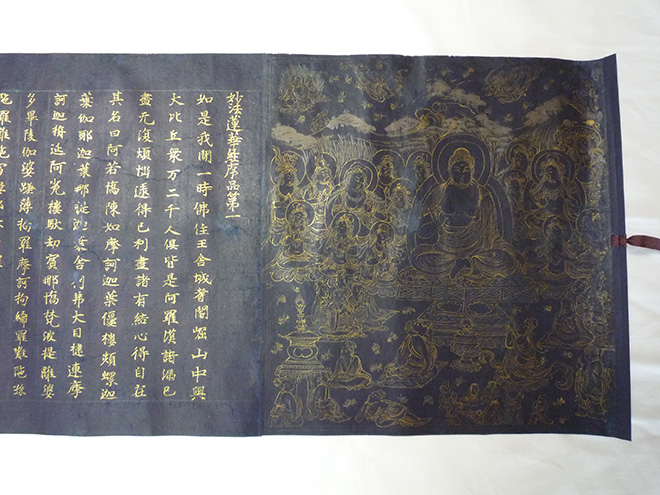 妙法蓮華経序品第一
如是我聞一時佛住王舎城耆闍崛山中與
大比丘衆万二千人俱皆是阿羅漢諸漏已
盡无復煩惱逮得己利盡諸有結心得自在
其名曰阿若憍陳如摩訶迦葉優樓頻螺迦
葉伽耶迦葉那提迦葉舎利弗大目揵連摩
訶迦栴延阿㝹樓馱劫賓那憍梵波提離婆
多畢陵伽婆蹉薄拘羅摩訶拘絺羅難陁孫
陁羅難陁